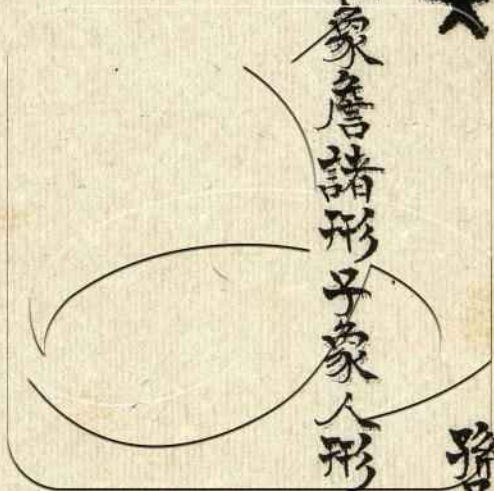 象詹諸形子象人形